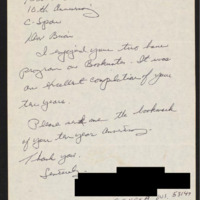 10th Anniversary
C-Span
Dear Brian
I enjoyed your two hour
program on Booknotes. It was
an excellent completion of your
ten years.
Please send me the bookmark
of your ten year Anniversary.
Thank you.
Sincerely,